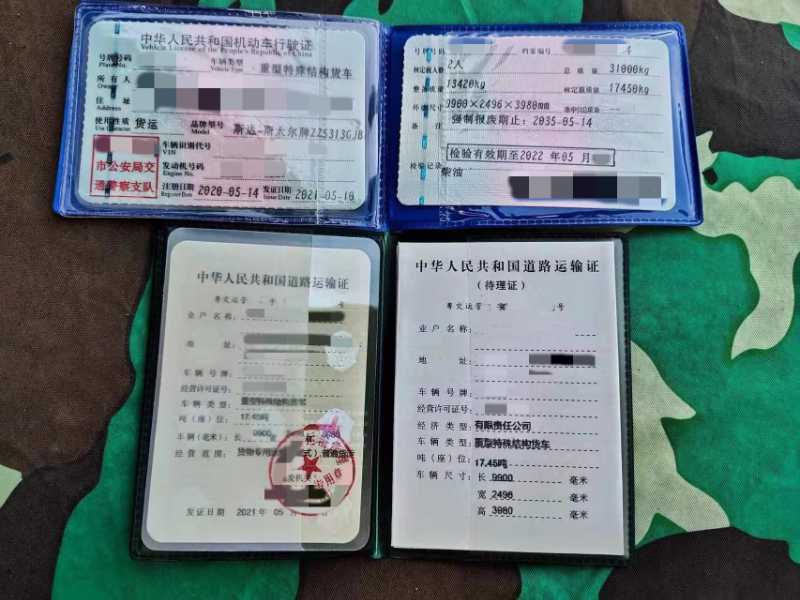 中华人民共和国机动车行驶证
Vehicle License of the People's Republic of China
号牌号码
车辆类型 重型特殊结构货车
Vehicle Type
所有人
住址
使用性质 货运
Use Character
品牌型号 斯达-斯太尔牌ZZ5313GJB
Model
车辆识别代号
VIN
发动机号码
市公安局交
通警察支队
注册日期 2020-05-14 发证日期 2021-05-10
Register Date Issue Date
号牌号码 档案编号
核定载人数 2人 总质量 31000kg
整备质量 13420kg 核定载质量 17450kg
外廓尺寸 9900×2496×3980
备注 强制报废期止:2035-05-14
检验记录
检验有效期至2022年05月
柴油
中华人民共和国道路运输证
粤交运管 字 号
业户名称:
地址:
车辆号牌:
经营许可证号:
车辆类型:重型特殊结构货车
吨(座)位:17.45吨
车辆(毫米) 长 9900 宽 3980
经营范围:货物专用 式) 普通货运
专用章
发证日期 2021年05
中华人民共和国道路运输证
(待理证)
粤交运管 号
业户名称:
地址:
车辆号牌:
经营许可证号:
经济类型:有限责任公司
车辆类型:重型特殊结构货车
吨(座)位:17.45吨
车辆尺寸:长 9900 毫米
宽 2496 毫米
高 3980 毫米